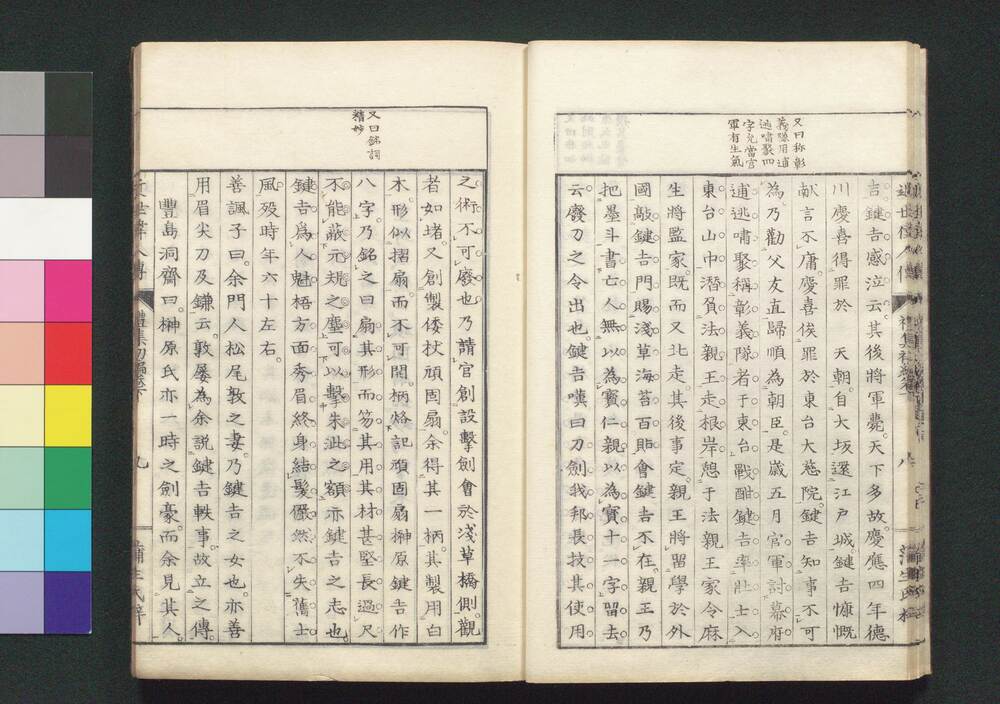 又曰称彰
義隊用逋
逃嘯聚四
字允當官
軍有生氣
吉。鍵吉感泣云。其後將軍薨。天下多故。慶應四年德
川慶喜得罪於　天朝。自大坂還江戸城鍵吉慷慨
献言不庸。慶喜俟罪於東台大慈院。鍵吉知事不可
為。乃勸父友直歸順為朝臣。是歳五月官軍討幕府
逋逃嘯聚稱彰義隊者于東台。戰酣鍵吉率壯士入
東台山中潛負法親王走根岸憩于法親王家令麻
生將監家。既而又北走。其後事定。親王將留學於外
國敲鍵吉門賜淺草海苔百帖會鍵吉不在親王乃
把墨斗書亡人無以為寳仁親以為寳十一字留去
云。廢刀之令出也鍵吉嘆曰刀劍我邦長技其使用
又曰銘詞
精妙
之術。不可廢也乃請官創設擊劍會於淺草橋側。觀
者如堵。又創製倭杖頑固扇。余得其一柄。其製用白
木。形似摺扇。而不可開。柄烙記頑固扇榊原鍵吉作
八字。乃銘之曰扇其形而笏其用其材甚堅長過尺
不能蔽元規之塵可以擊朱泚之額亦鍵吉之志也
鍵吉為人魁梧方面秀眉終身結髮儼然不失舊士
風歿時年六十左右。
善諷子曰。余門人松尾敦之妻。乃鍵吉之女也。亦善
用眉尖刀及鎌云。敦屡為余説鍵吉軼事。故立之傳。
豐島洞齋曰。榊原氏亦一時之劍豪。而余見其人。
近世偉人傳
禮集初編卷下
九
蒲生氏梓